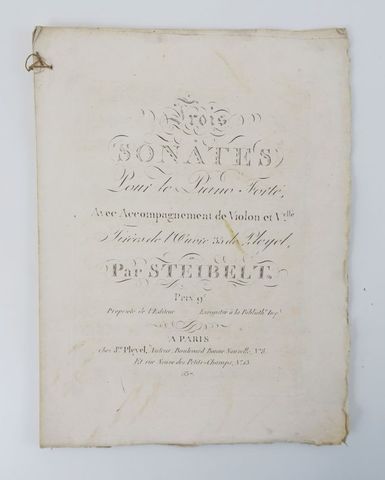 Trois
SONATES
Pour le Piano Forte,
Avec Accompagnement de Violon et V.lle
Tirées de l'Œuvre 35 de Pleyel,
Par STEIBELT.
Prix 9.
Propriété de l'Editeur Enregistré à la Biblioth. Imp.
A PARIS
chez Pleyel, Auteur, Boulevard Bonne Nouvelle, N.º 8.
Et rue Neuve des Petits-Champs, N.º